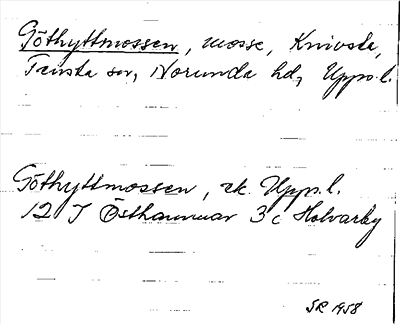 Göthyttmossen, mosse, Knivsta,
Tensta sn, Norunda hd, Upps.l.
Göthyttmossen, ek. Upps.l.
12 I Östhammar 3c Holvarby
SR 1958